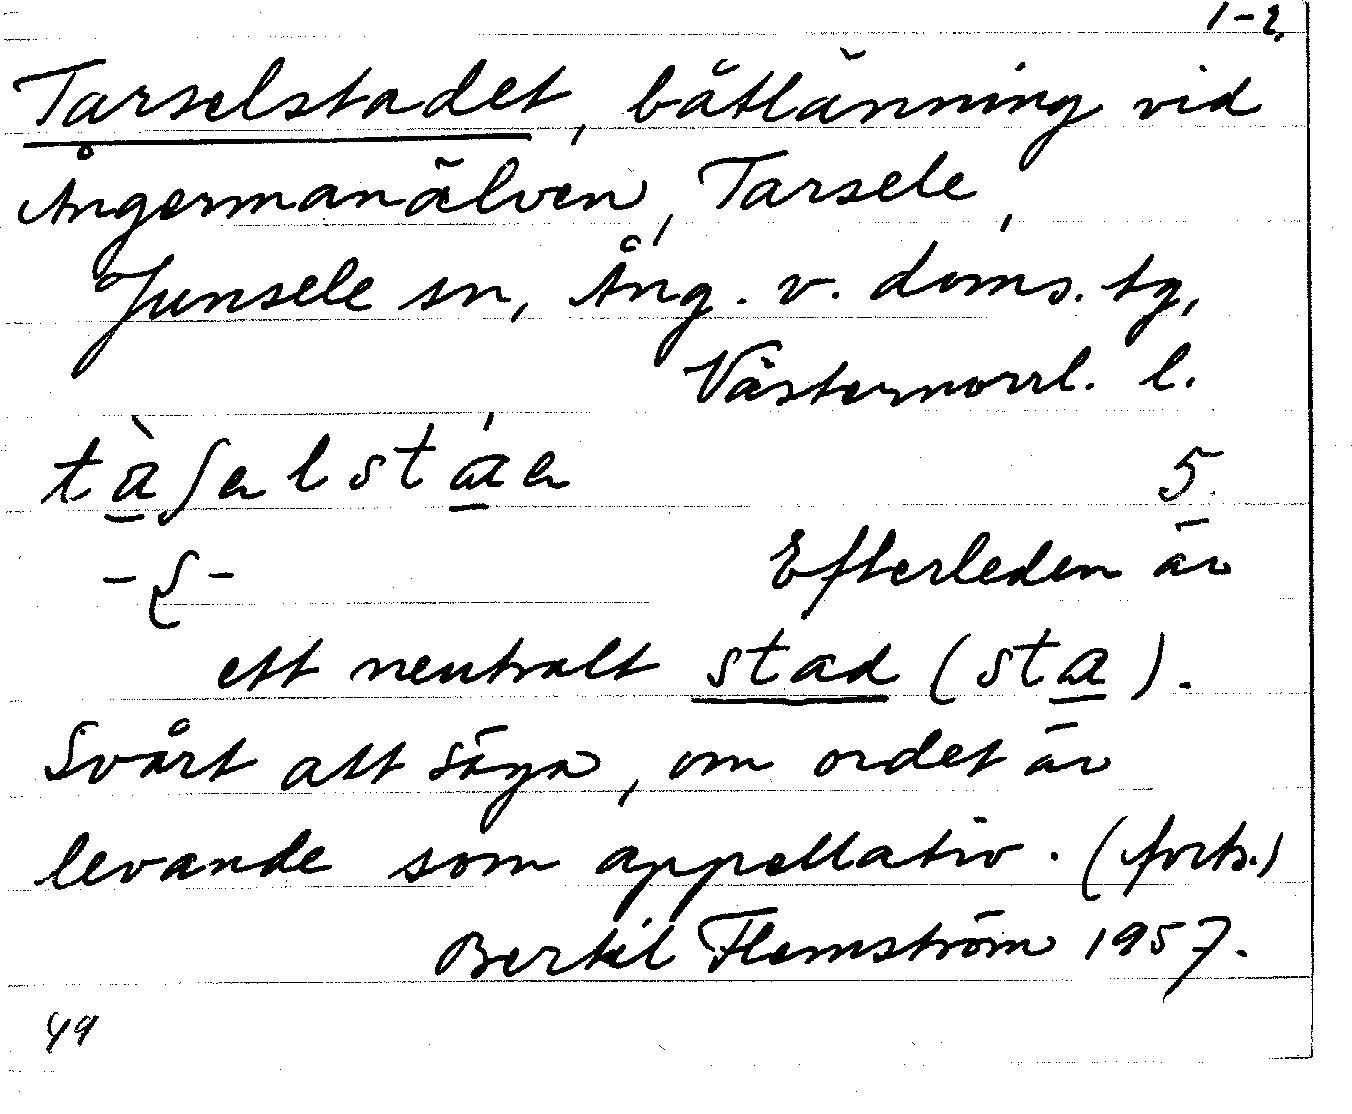 1-2.
Tarselstadet, båtlänning vid
Ångermanälven, Tarsele,
Junsele sn, Ång. v. doms. tg,
Västernorrl. l.
tàʃəlstáə 5.
-ʃ- Efterleden är
ett neutralt stad (sta).
Svårt att säga, om ordet är
levande som appellativ. (forts.)
Bertil Flemström 1957.
49